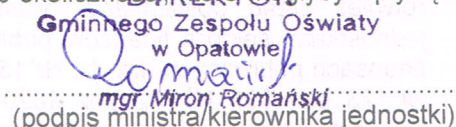 Gminnego Zespołu Oświaty
w Opatowie
mgr Miron Romański
(podpis ministra/kierownika jednostki)